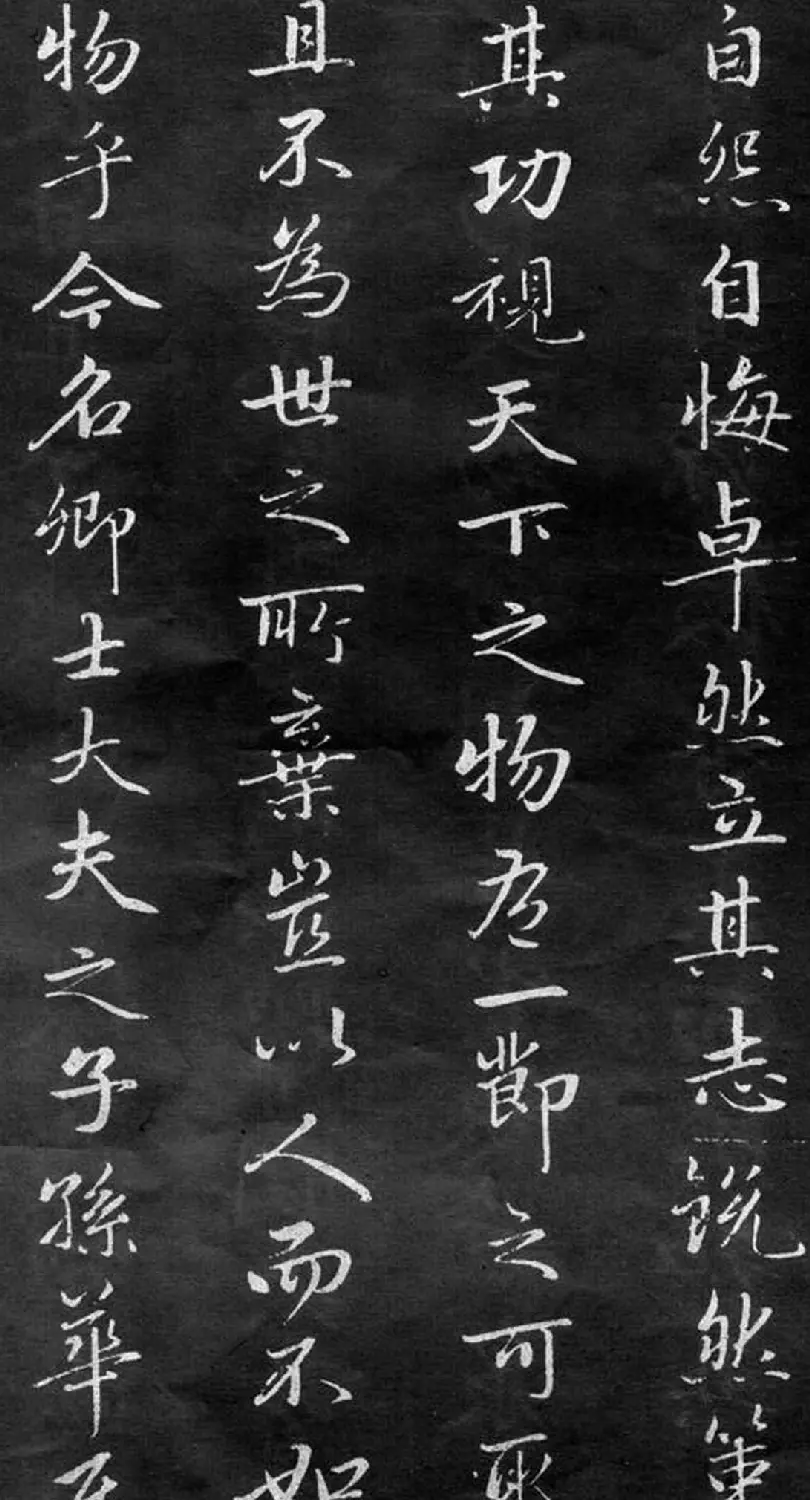 自怨自悔卓然立其志銳然策
其功視天下之物有一節之可取
且不為世之所棄豈以人而不如
物乎今名卿士大夫之子孫華